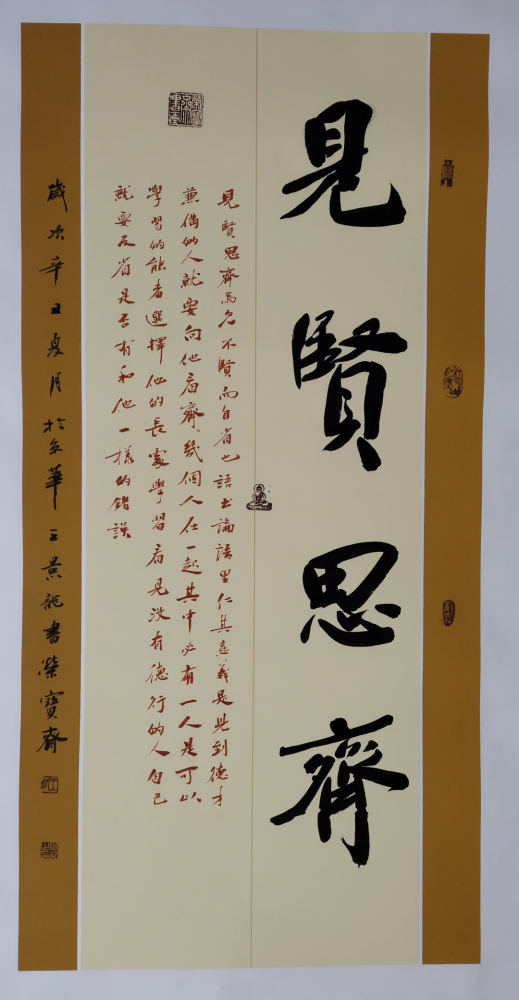 見賢思齊
見賢思齊焉見不賢而自省也語出論語里仁其意義是見到德才
兼備的人就要向他看齊。幾個人在一起其中必有一人是可以
學習的能者選擇他的長處學習看見沒有德行的人自己
就要反省是否有和他一樣的錯誤
歲次辛丑夏月於京華王景龍書榮寶齋